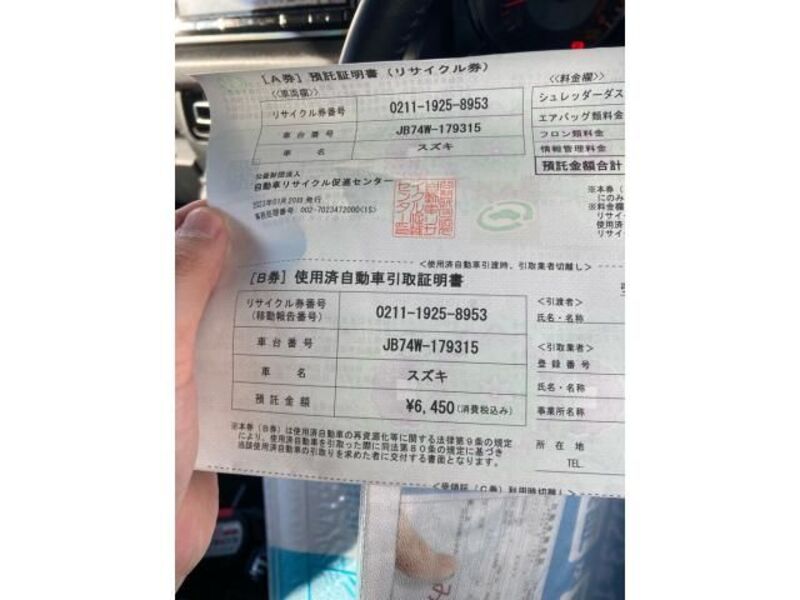 [A券] 預託証明書 (リサイクル券)
<<車両欄>>
リサイクル券番号 0211-1925-8953
車台番号 JB74W-179315
車名 スズキ
<<料金欄>>
シュレッダーダス
エアバッグ類料金
フロン類料金
情報管理料金
預託金額合計
公益財団法人
自動車リサイクル促進センター
2023年01月20日 発行
※本券(
にのみ
※料金欄
リサイ
使用済
リサイ
<使用済自動車引渡時、引取業者切離し>
[B券] 使用済自動車引取証明書
リサイクル券番号
(移動報告番号) 0211-1925-8953
車台番号 JB74W-179315
車名 スズキ
預託金額 ¥6,450(消費税込み)
<引渡者>
氏名・名称
<引取業者>
登録番号
氏名・名称
事業所名称
所在地
TEL.
※本券(B券)は使用済自動車の再資源化等に関する法律第9条の規定
により、使用済自動車を引取った際に同法第80条の規定に基づき
当該使用済自動車の引取りを求めた者に交付する書面となります。
<受領証(C券)利用時切離し>